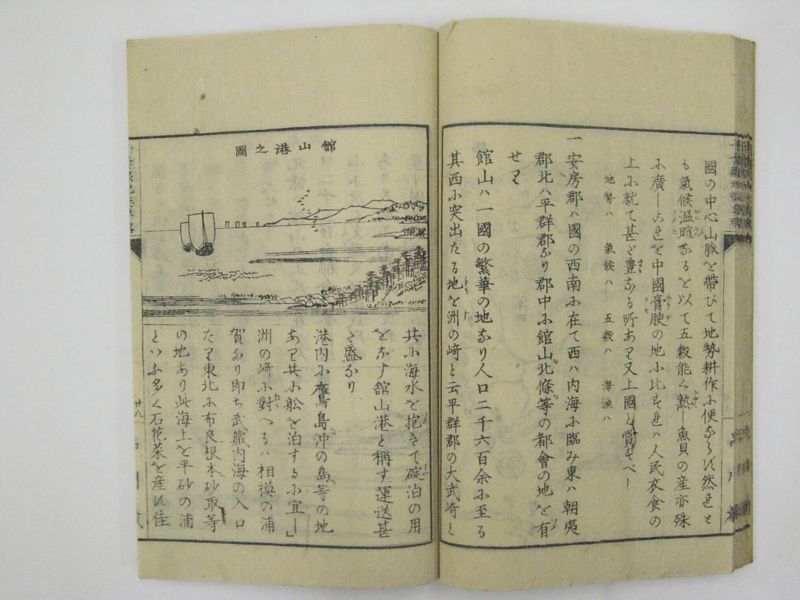 國の中心山脈を帶びて地勢耕作ふ便ならバ然れと
も氣候温暄なるを以て五穀能く熟し魚貝の産亦殊
ふ廣しこれを中國膏腴の地ふ比すれハ人民衣食の
上ふ就て甚と豊なる所あり又上國と賞すべし
地勢ハ 氣候ハ 五穀ハ 海漁ハ
一安房郡ハ國の西南ふ在て西ハ内海ふ臨み東ハ朝夷
郡北ハ平群郡なり郡中ふ館山北條等の都會の地を有
せり
館山ハ一國の繁華の地なり人口二千六百余ふ至る
其西ふ突出たる地を洲の崎と云平群郡の大武崎と
館山港之圖
共ふ海水を抱きて碇泊の用
をなす舘山港と稱す運送甚
だ盛なり
港内ふ鷹島沖の島等の地
あり共ふ舩を泊するふ宜し
洲の崎ふ對へるハ相模の浦
賀なり即ち武藏内海の入口
たり東北ふ布良根本砂取等
の地あり此海上を平砂の浦
といふ多く石花菜を産バ佳